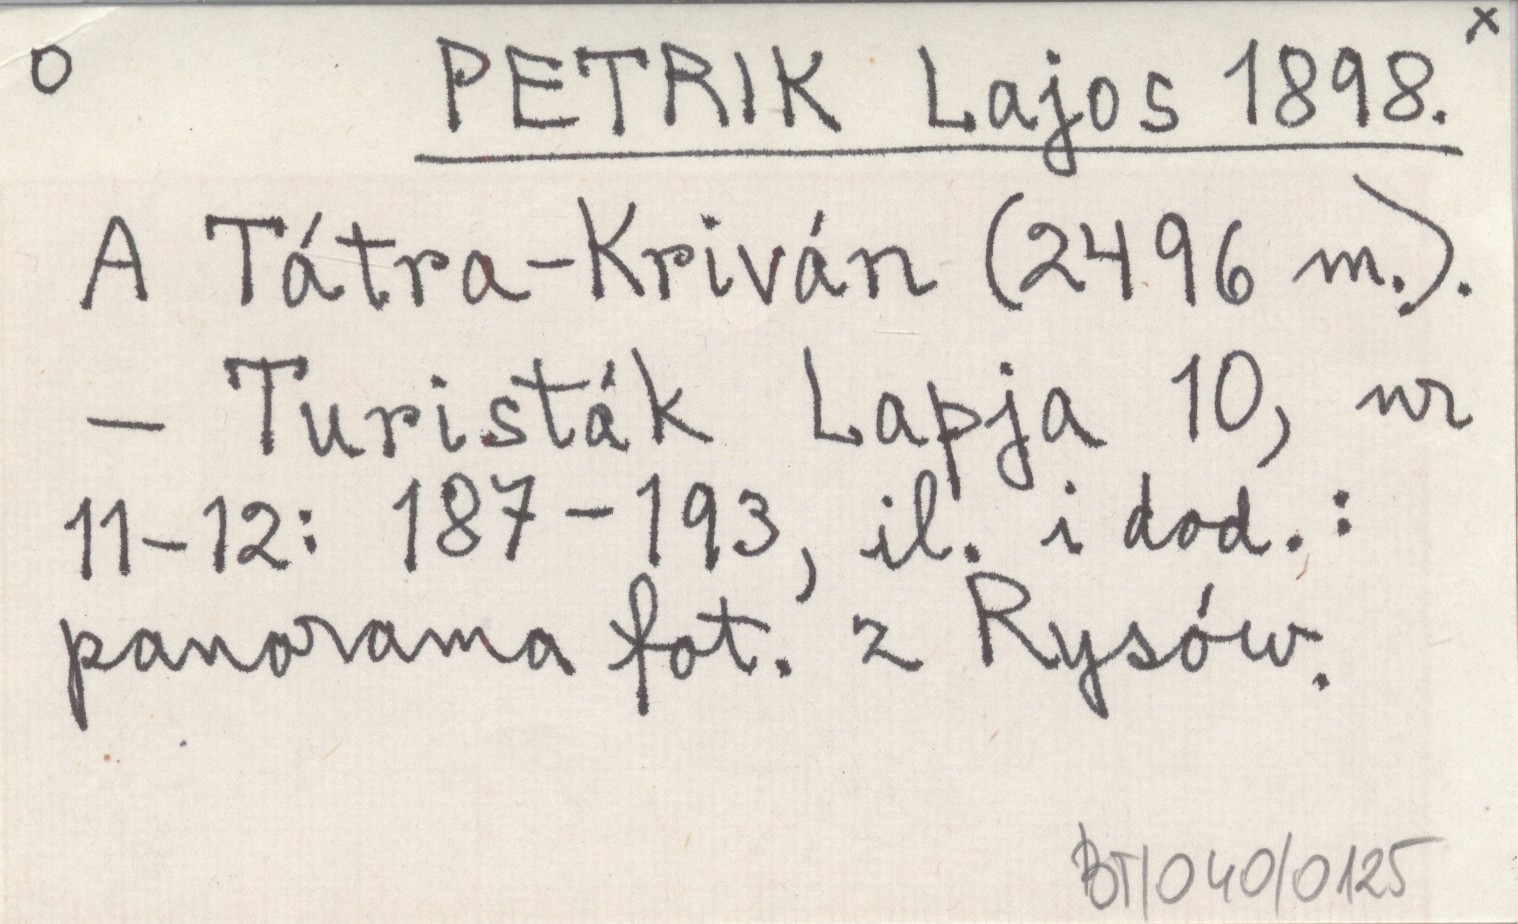 O PETRIK Lajos 1898. x
A Tátra-Kriván (2496 m.).
– Turisták Lapja 10, nr
11–12: 187–193, il. i dod.:
panorama fot. z Rysów.
BT/040/0125